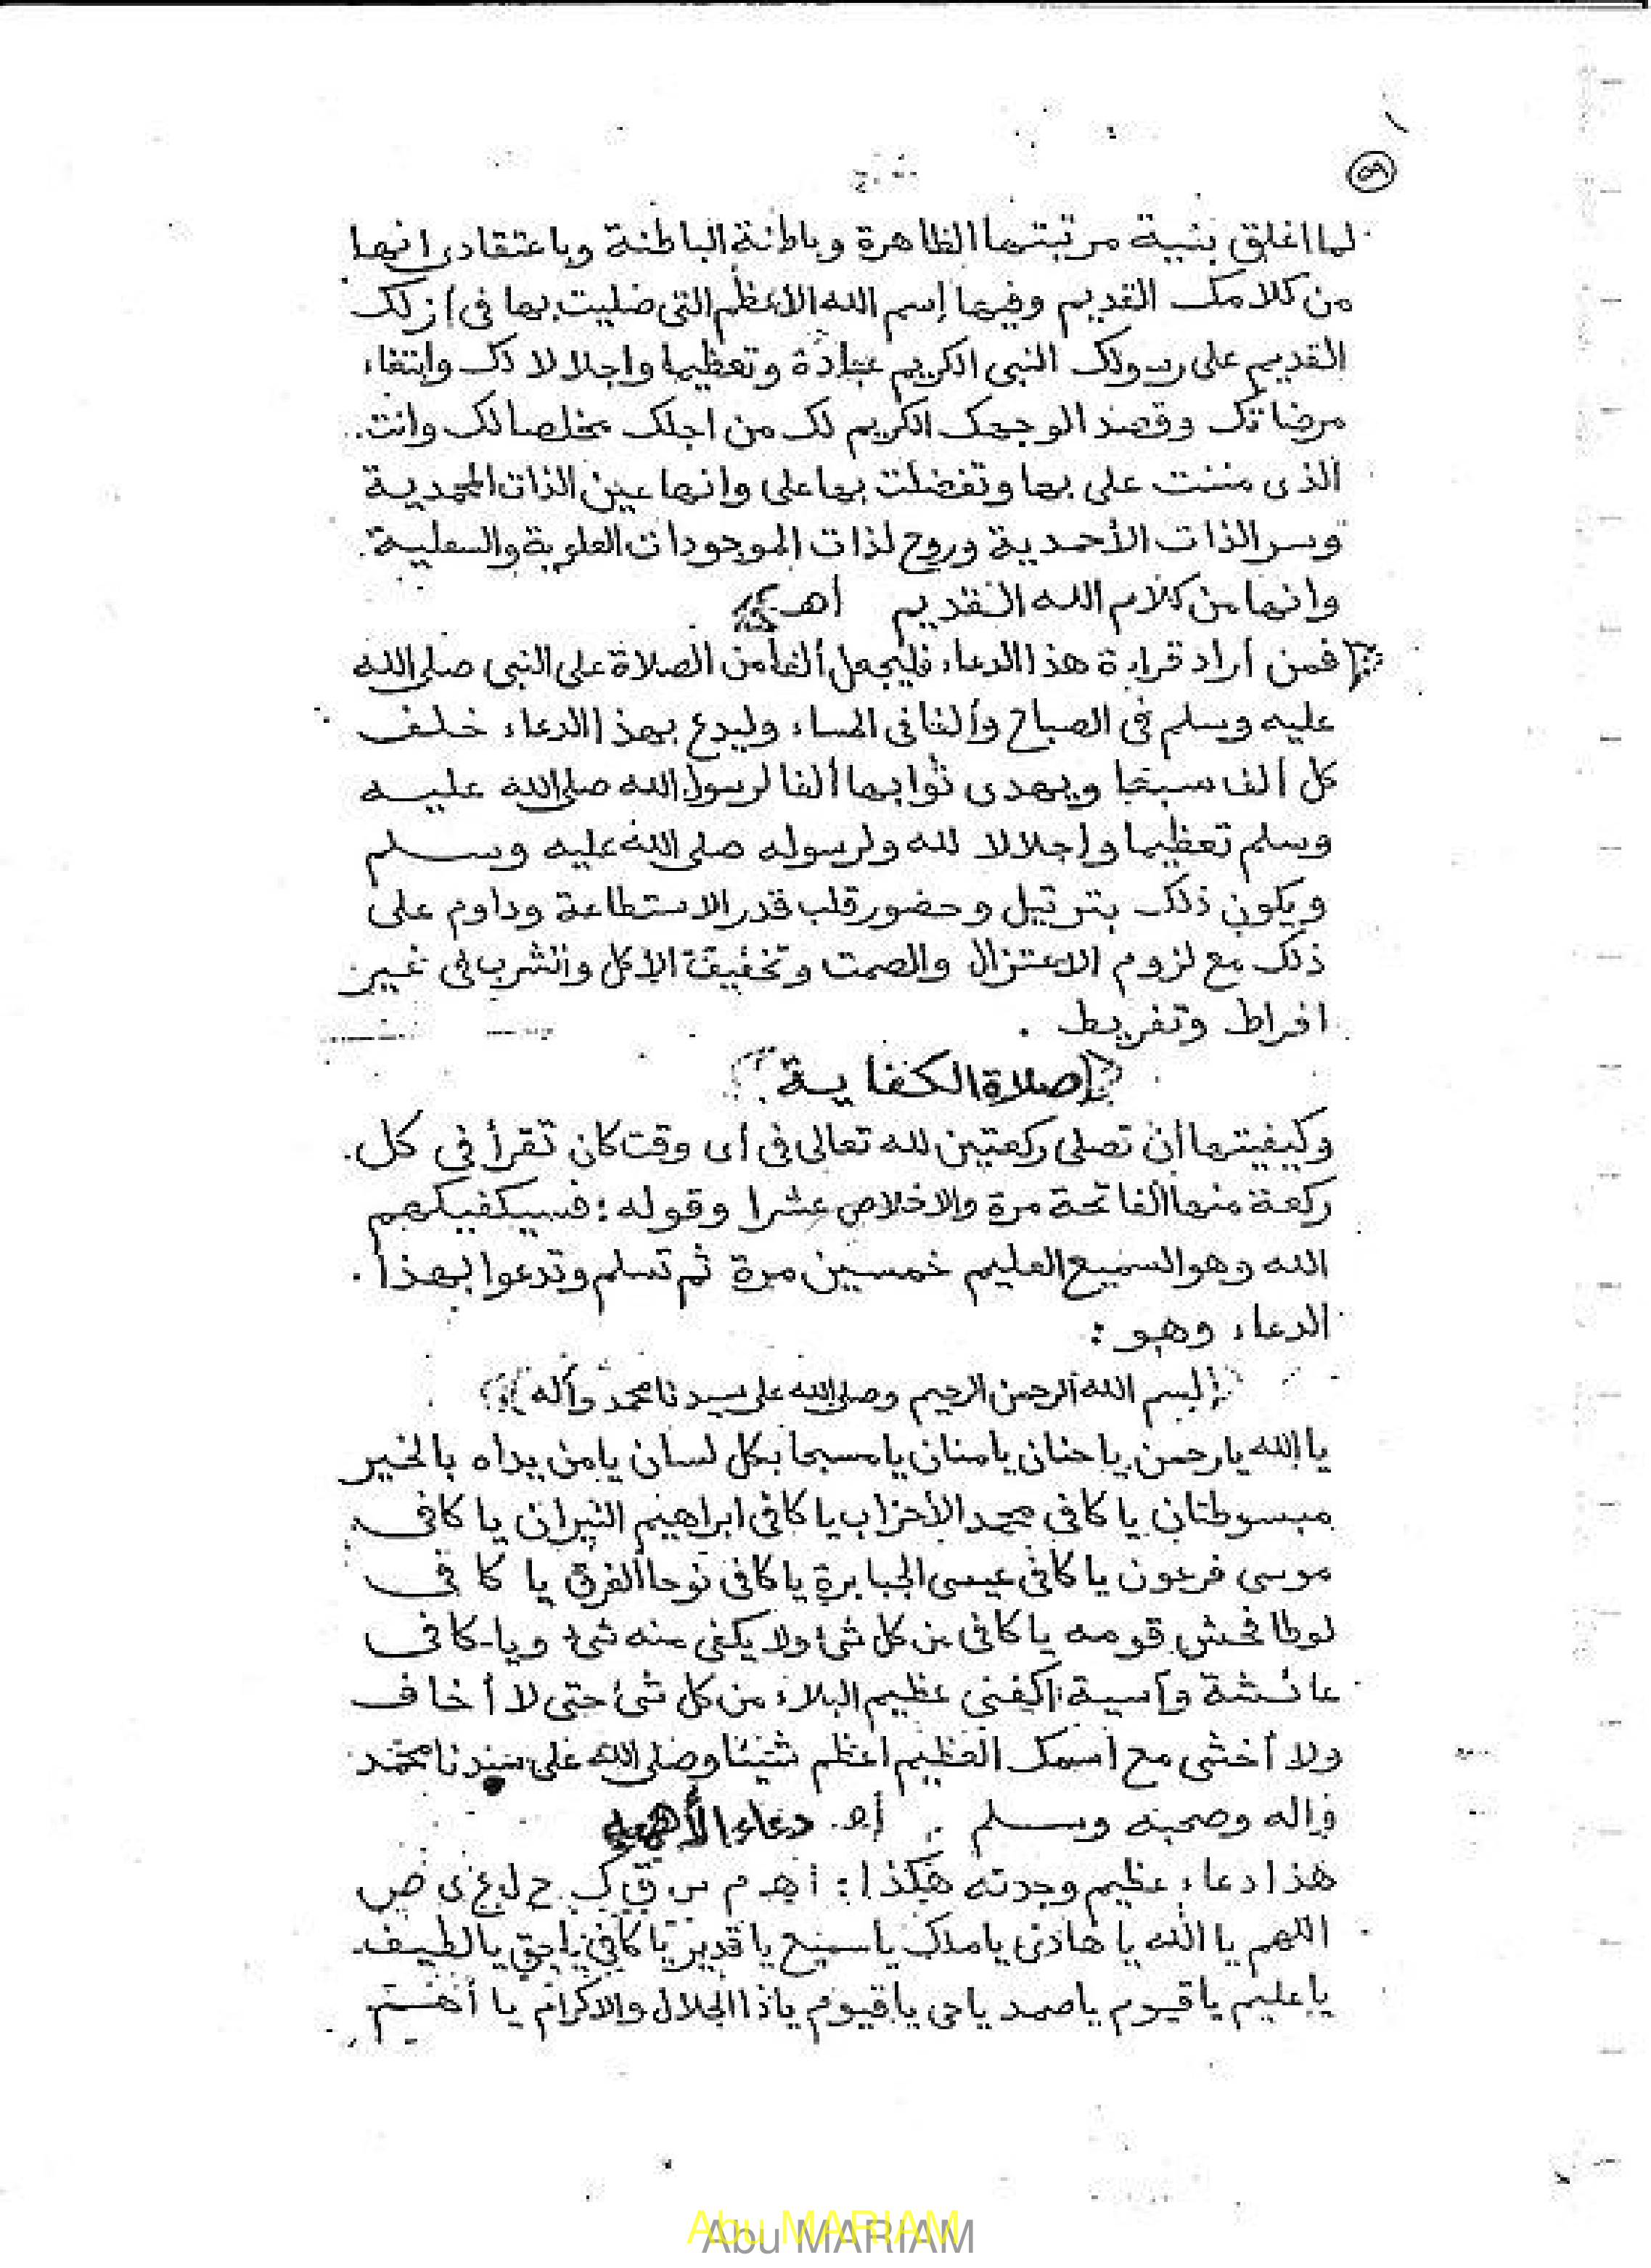 لما اغلق بنية مرتبتها الظاهرة وباطنة الباطنة وباعتقادى انها
من كلامك القديم وفيها إسم الله الاعظم التى صليت بها فى أزلك
القديم على رسولك النبى الكريم عبادة وتعظيما واجلالا لك وابتغاء
مرضاتك وقصد الوجهك الكريم لك من اجلك مخلصا لك وانت
الذى مننت على بها وتفضلت بها على وانها عين الذات المحمدية
وسر الذات الأحمدية وروح لذات الموجودات العلوية والسفلية
وانها من كلام الله القديم أهـ
فمن أراد قراءة هذا الدعاء فليجعل ألفا من الصلاة على النبى صلى الله
عليه وسلم فى الصباح وألفا فى المساء وليدع بهذا الدعاء خلف
كل ألف سبعا ويهدى ثوابها ألفا لرسول الله صلى الله عليه
وسلم تعظيما وإجلالا لله ولرسوله صلى الله عليه وسلم
ويكون ذلك بترتيل وحضور قلب قدر الاستطاعة وداوم على
ذلك مع لزوم الاعتزال والصمت وتخفيف الاكل والشرب فى غير
افراط وتفريط .
صلاة الكفاية
وكيفيتها أن تصلى ركعتين لله تعالى فى أى وقت كان تقرأ فى كل
ركعة منها الفاتحة مرة والاخلاص عشرا وقوله : فسيكفيكهم
الله وهو السميع العليم خمسين مرة ثم تسلم وتدعوا بهذا
الدعاء وهو :
(بسم الله الرحمن الرحيم وصلى الله على سيدنا محمد وآله)
يا الله يا رحمن يا حنان يا منان يا مسبحا بكل لسان يا من يداه بالخير
مبسوطتان يا كافى محمد الأحزاب يا كافى ابراهيم النيران يا كافى
موسى فرعون يا كافى عيسى الجبابرة يا كافى نوحا الغرق يا كافى
لوطا فحش قومه يا كافى من كل شئ ولا يكفى منه شئ ويا كافى
عائشة وآسية اكفنى عظيم البلاء من كل شئ حتى لا أخاف
ولا أخشى مع اسمك العظيم اعظم شيئا وصلى الله على سيدنا محمد
وآله وصحبه وسلم . أهـ. دعاء
هذا دعاء عظيم وجدته هكذا : أهـ م س ق ك ح ل ع ى ص
اللهم يا الله يا هادى يا ملك يا سميع يا قدير يا كافى يا حق يا لطيف
يا عليم يا قيوم يا صمد يا حى يا قيوم يا ذا الجلال والاكرام يا
Abu MARIAM